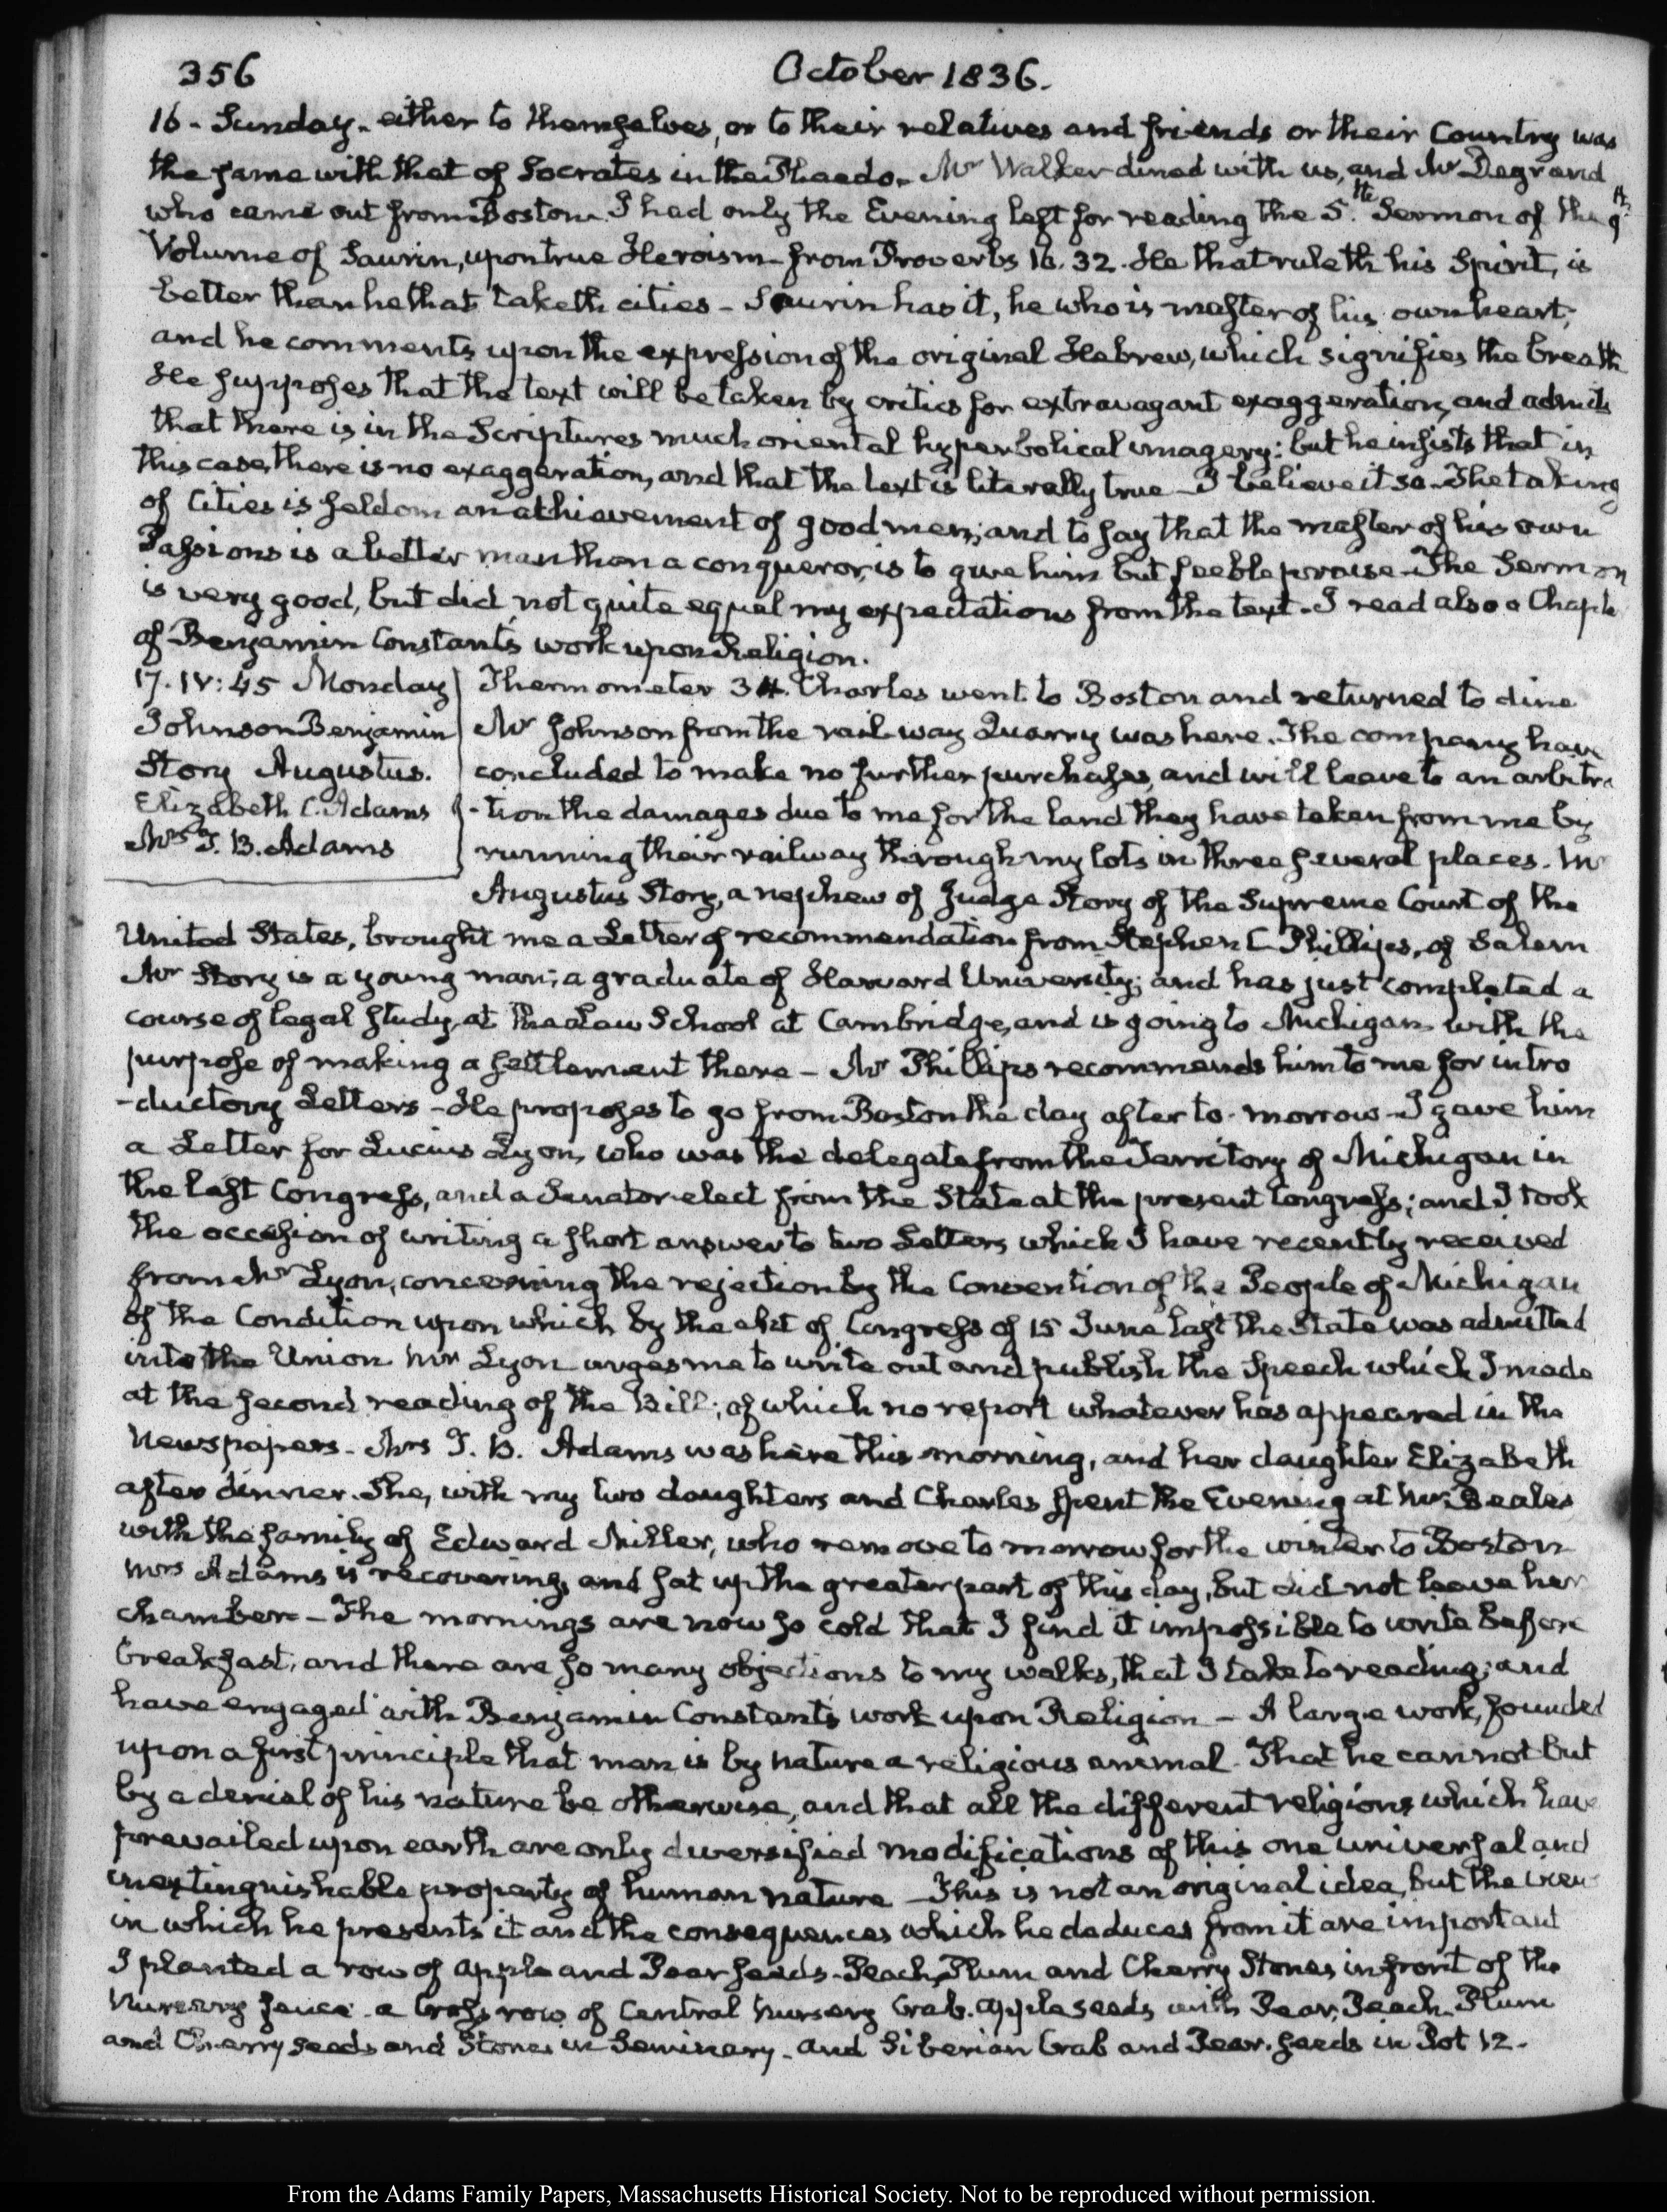 356
October 1836.
16 - Sunday - either to themselves, or to their relatives and friends or their Country was
the same with that of Socrates in the Phaedo. Mr Walker dined with us, and Mr Degrand
who came out from Boston. I had only the Evening left for reading the 5.th Sermon of the 9th
Volume of Saurin, upon true Heroism - from Proverbs 16. 32. He that ruleth his Spirit, is
better than he that taketh cities - Saurin has it, he who is master of his own heart;
and he comments upon the expression of the original Hebrew, which signifies the breath
He supposes that the text will be taken by critics for extravagant exaggeration, and admits
that there is in the Scriptures much oriental hyperbolical imagery: but he insists that in
this case, there is no exaggeration, and that the text is literally true - I believe it so. The taking
of Cities is seldom an athievement of good men; and to say that the master of his own
Passions is a better man than a conqueror, is to give him but feeble praise - The Sermon
is very good, but did not quite equal my expectations from the text. I read also a Chapte
of Benjamin Constant's work upon Religion.
17. IV: 45 Monday
Johnson Benjamin
Story Augustus.
Elizabeth C. Adams
Mrs T. B. Adams
Thermometer 34. Charles went to Boston and returned to dine
Mr Johnson from the rail-way Quarry was here. The company have
concluded to make no further purchases, and will leave to an arbitra
-tion the damages due to me for the land they have taken from me by
running their railway through my lots in three several places. Mr
Augustus Story, a nephew of Judge Story of the Supreme Court of the
United States, brought me a Letter of recommendation from Stephen C Phillips, of Salem
Mr Story is a young man; a graduate of Harvard University; and has just completed a
course of legal study, at the Law School at Cambridge, and is going to Michigan with the
purpose of making a settlement there - Mr Phillips recommends him to me for intro
-ductory Letters - He proposes to go from Boston the day after to-morrow - I gave him
a Letter for Lucius Lyon, who was the delegate from the Territory of Michigan in
the last Congress, and a Senator elect from the State at the present Congress; and I took
the occasion of writing a short answer to two Letters which I have recently received
from Mr Lyon, concerning the rejection by the Convention of the People of Michigan
of the Condition upon which by the Act of Congress of 15 June last the State was admitted
into the Union. Mr Lyon urges me to write out and publish the Speech which I made
at the second reading of the Bill; of which no report whatever has appeared in the
Newspapers. Mrs T. B. Adams was here this morning, and her daughter Elizabeth
after dinner. She, with my two daughters and Charles spent the Evening at Mrs Beales
with the family of Edward Miller, who remove to morrow for the winter to Boston
Mrs Adams is recovering, and sat up the greater part of this day, but did not leave her
chamber - The mornings are now so cold that I find it impossible to write before
breakfast, and there are so many objections to my walks, that I take to reading; and
have engaged with Benjamin Constant's work upon Religion - A large work, founded
upon a first principle that man is by nature a religious animal. That he cannot but
by a denial of his nature be otherwise, and that all the different religions which have
prevailed upon earth are only diversified modifications of this one universal and
inextinguishable property of human nature - This is not an original idea, but the view
in which he presents it and the consequences which he deduces from it are important
I planted a row of apple and Pear seeds - Peach, Plum and Cherry Stones in front of the
Nursery fence - a Cross row of Central Nursery Crab-apple seeds with Pear, Peach, Plum
and Cherry seeds and Stones in Seminary - and Siberian Crab and Pear-seeds in Pot 12.
From the Adams Family Papers, Massachusetts Historical Society. Not to be reproduced without permission.